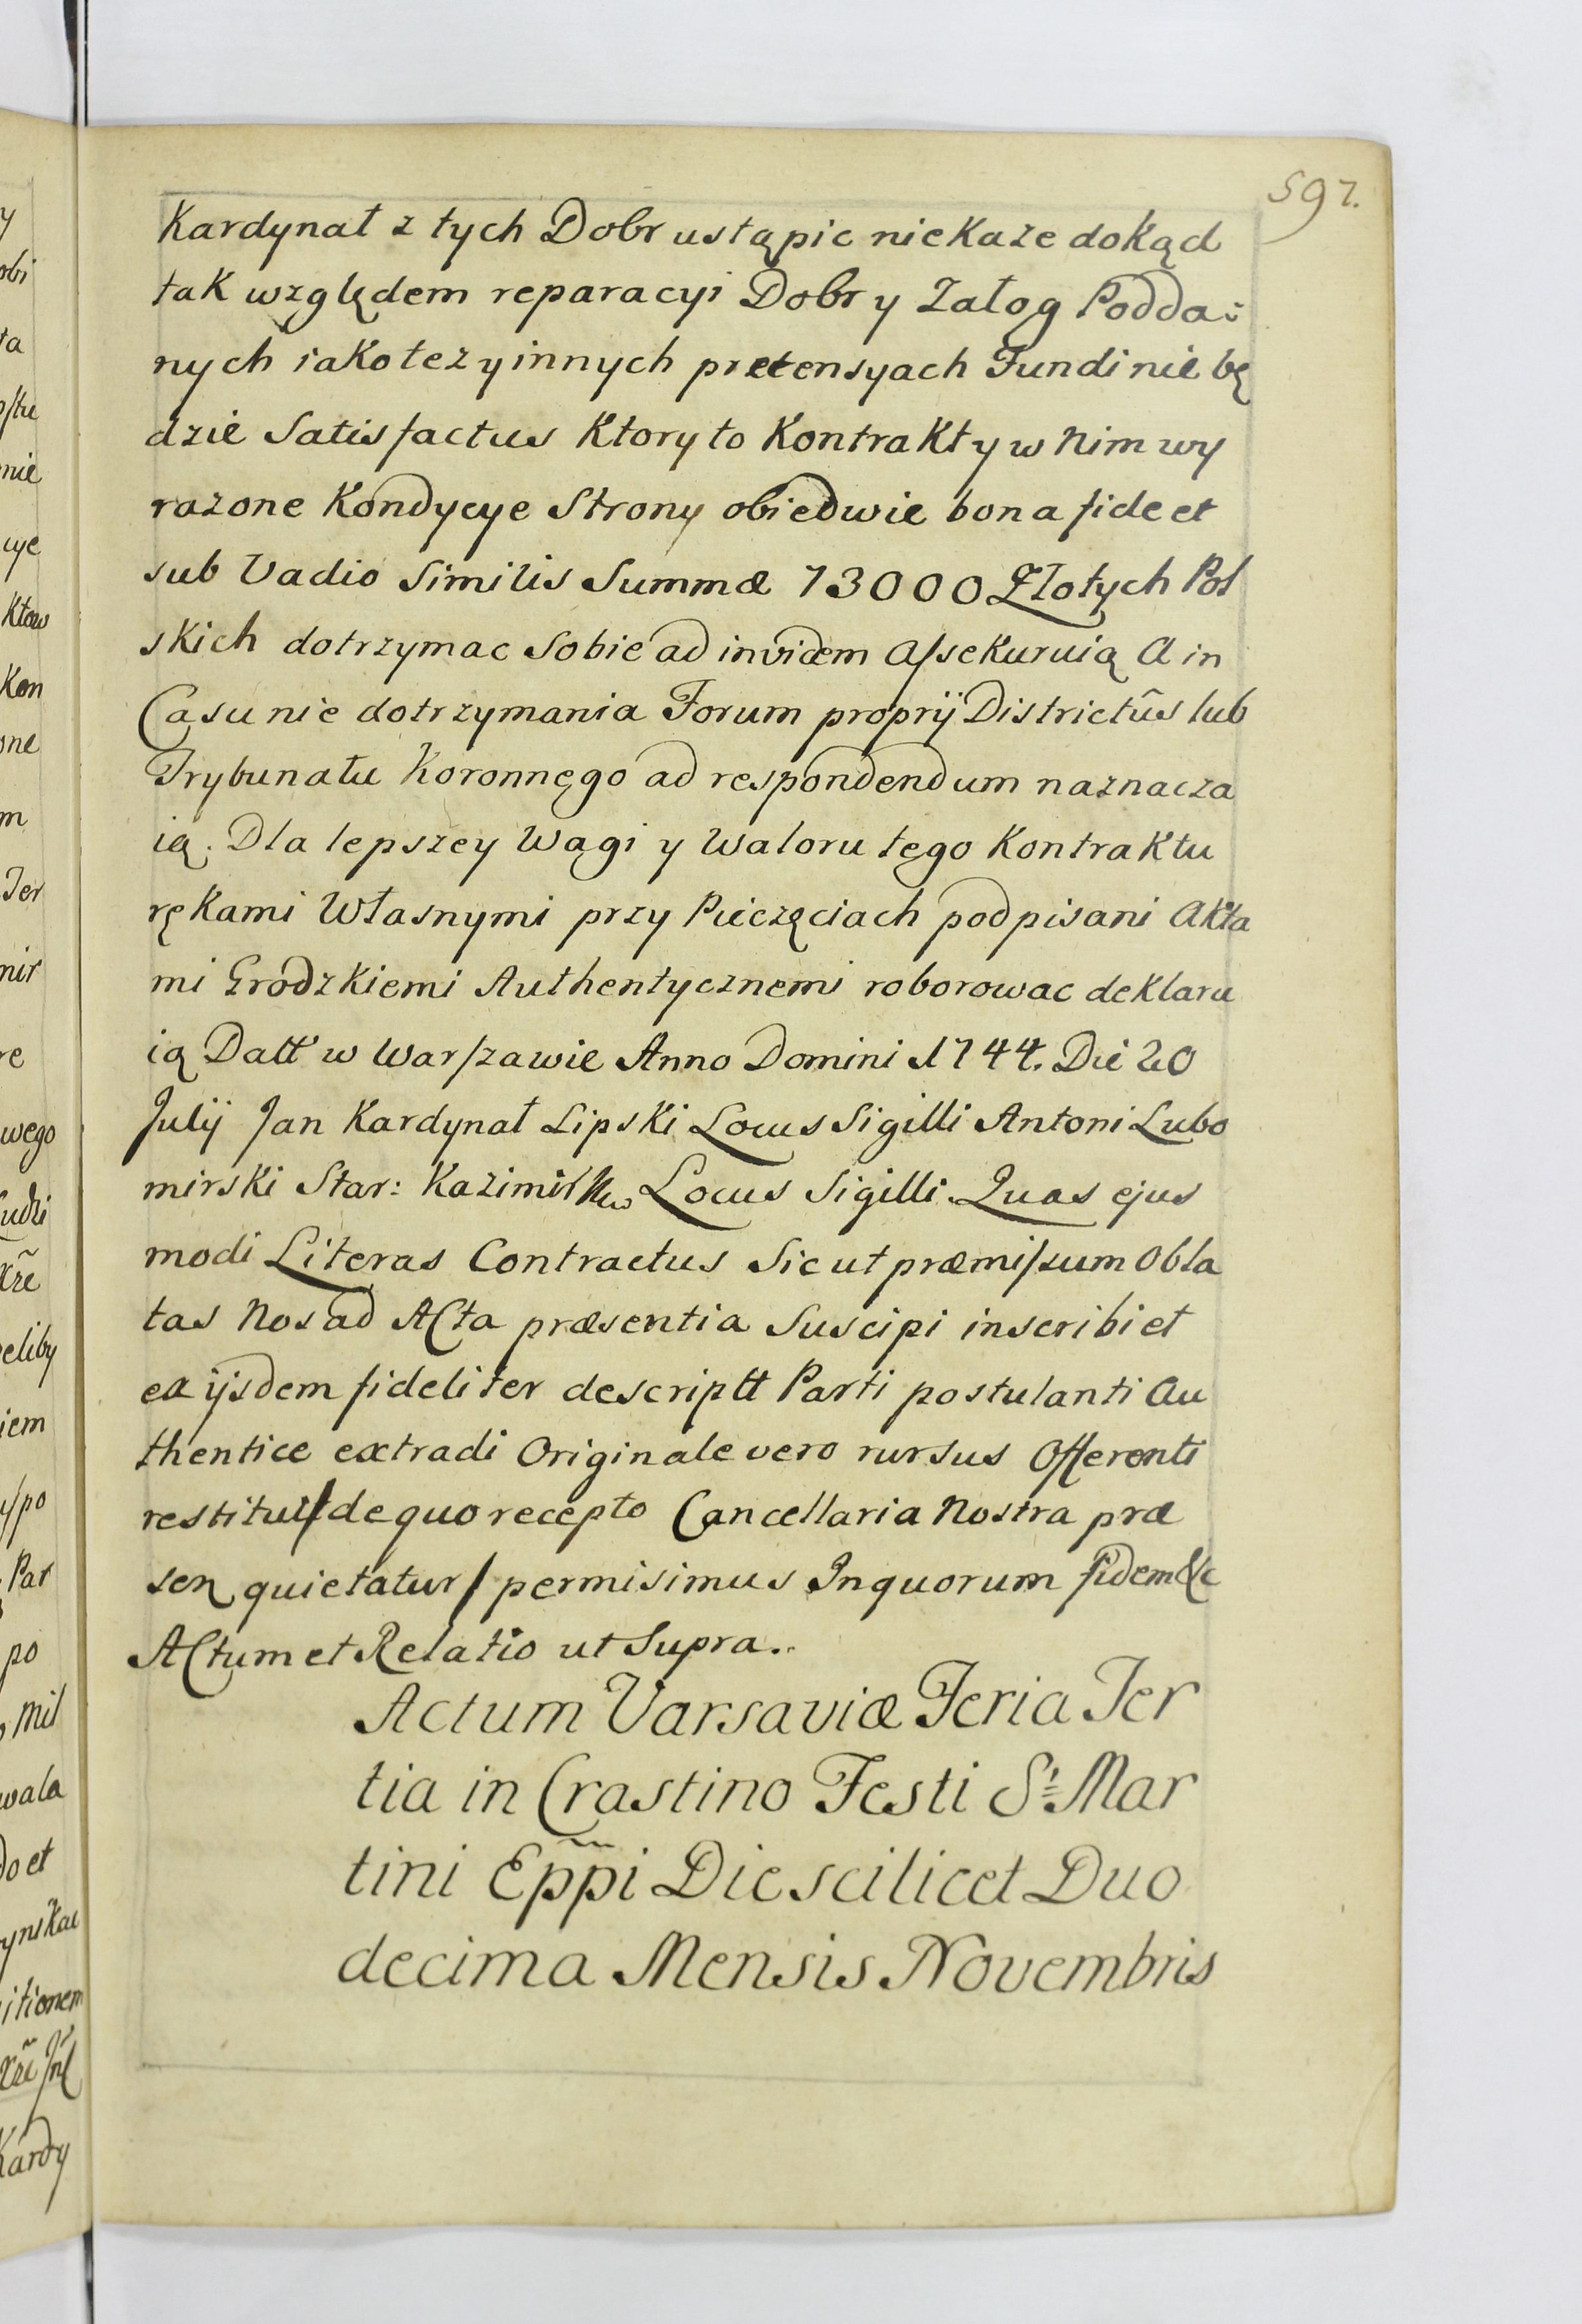 597.
Kardynał z tych Dobr ustąpic nie Kaze dokąd
tak względem reparacyi Dobr y Załog Podda-
nych iako tez y innych pretensyach Fundi nie bę
dzie Satisfactus Ktory to Kontrakt y w Nim wy
razone Kondycye Strony obiedwie bona fide et
sub Vadio Similis Summæ 13000 Złotych Pol
skich dotrzymac Sobie ad invicem Assekuruią A in
Casu nie dotrzymania Forum proprij Districtûs lub
Trybunału Koronnęgo ad respondendum naznacza
ią. Dla lepszey Wągi y Waloru tęgo Kontraktu
rękami Własnymi przy Pieczęciach podpisani Akta
mi Grodzkiemi Authentycznemi roborowac deklaru
ią Datt w Warszawie Anno Domini 1744. Die 20
Julij Jan Kardynał Lipski Locus Sigilli Antoni Lubo
mirski Star: Kazimir Locus Sigilli. Quas ejus
modi Literas Contractus Sicut præmissum Obla
tas Nos ad Acta præsentia Suscipi inscribi et
ex ijsdem fideliter descriptt Parti postulanti Au
thentice extradi Originale vero rursus Offerenti
restitui/ de quo recepto Cancellaria Nostra præ
sen quietatur/ permisimus In quorum fidem &c
Actum et Relatio ut Supra..
Actum Varsaviæ Feria Ter
tia in Crastino Festi St: Mar
tini Epp̃i Die scilicet Duo
decima Mensis Novembris